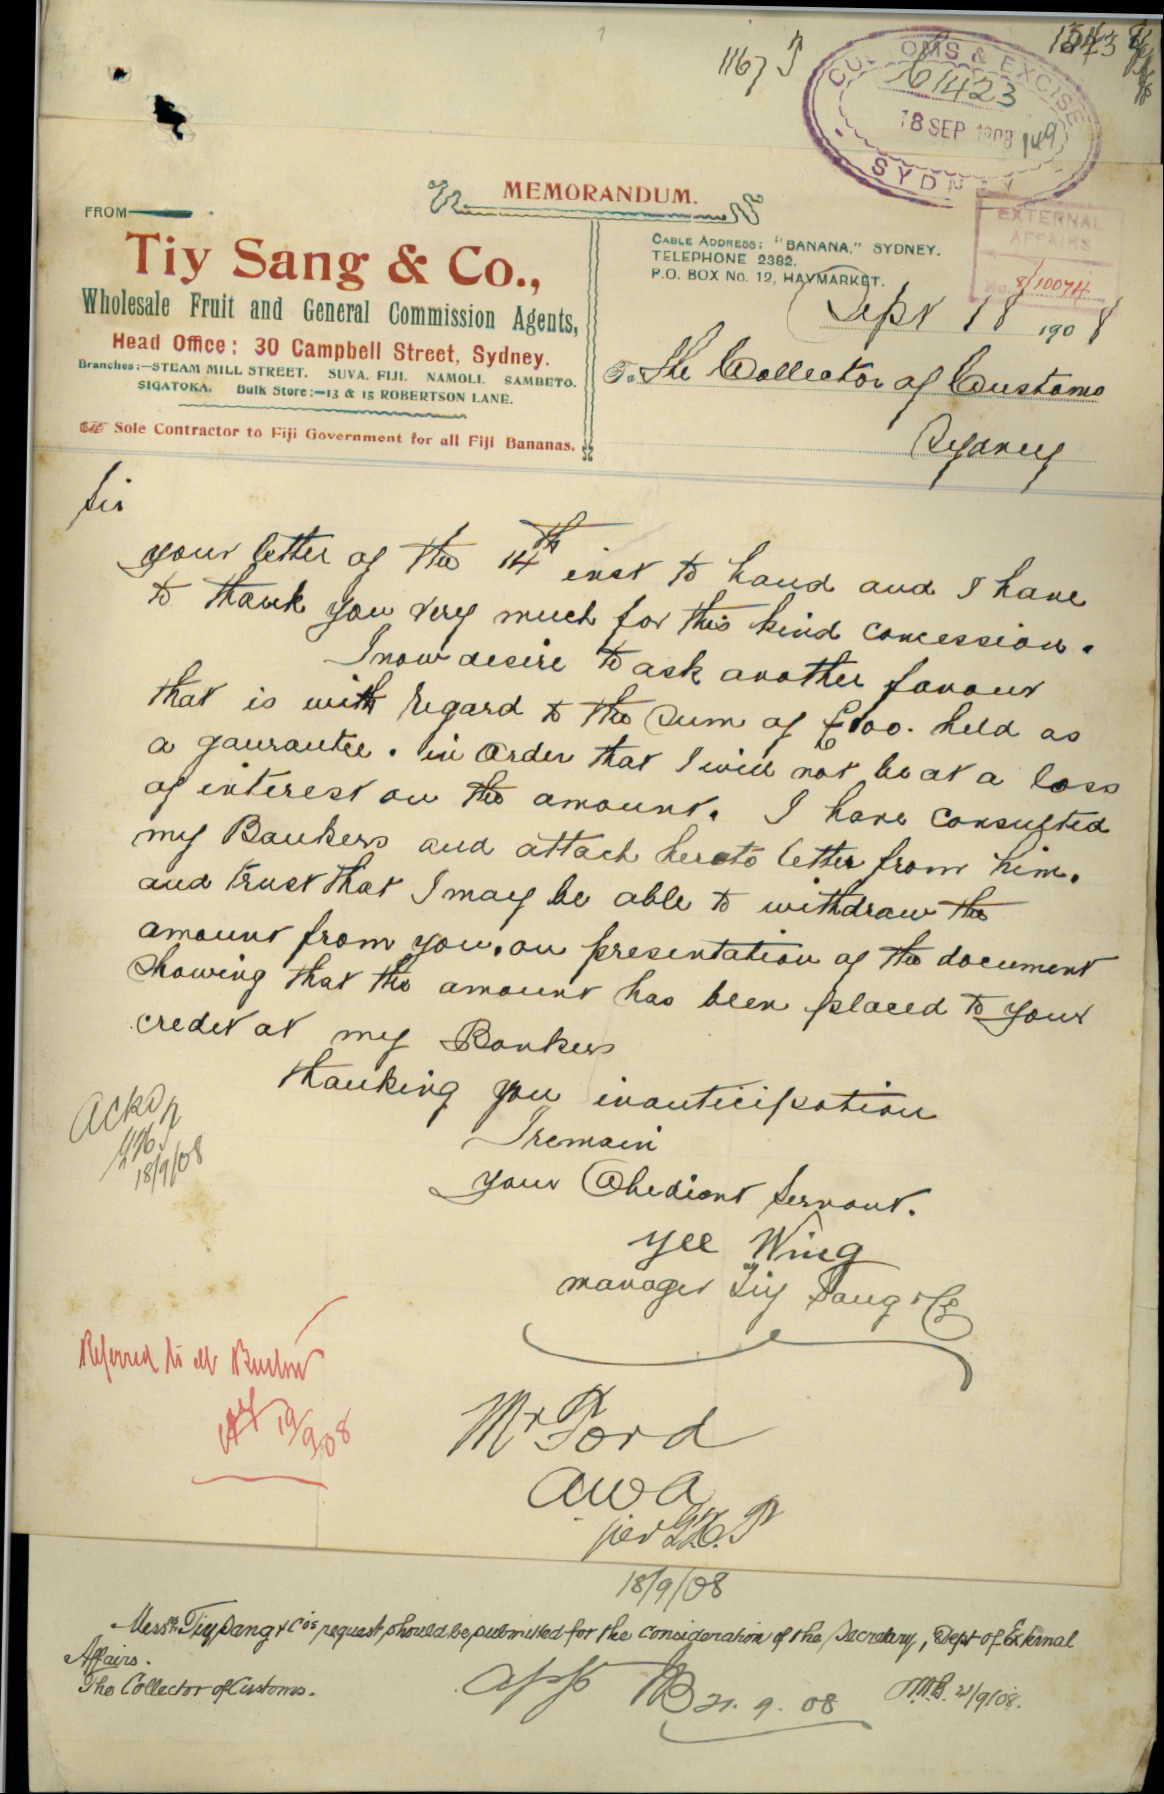 1167
CUSTOMS & EXCISE
61423
18 SEP 1908 149
SYDNEY
EXTERNAL
AFFAIRS
No. 8/10074
MEMORANDUM.
FROM
Tiy Sang & Co.,
Wholesale Fruit and General Commission Agents,
Head Office: 30 Campbell Street, Sydney.
Branches:—STEAM MILL STREET. SUVA, FIJI. NAMOLI. SAMBETO.
SIGATOKA. Bulk Store:—13 & 15 ROBERTSON LANE.
Sole Contractor to Fiji Government for all Fiji Bananas.
CABLE ADDRESS: "BANANA," SYDNEY.
TELEPHONE 2382.
P.O. BOX No. 12, HAYMARKET.
Sept 18 1908
To The Collector of Customs
Sydney
Sir
your letter of the 14th inst to hand and I have
to thank you very much for this kind concession.
I now desire to ask another favour
that is with regard to the sum of £100. held as
a gaurantee. in order that I will not be at a loss
of interest on the amount. I have consulted
my Bankers and attach hereto letter from him.
and trust that I may be able to withdraw the
amount from you, on presentation of the document
showing that the amount has been placed to your
credit at my Bankers
thanking you in anticipation
I remain
your Obedient Servant.
Yee Wing
manager Tiy Sang & Co
Ackd
18/9/08
Referred to Mr Barlow
19/9/08
Mr Ford
AWA
per
18/9/08
Messrs. Tiy Sang & Co's request should be submitted for the consideration of the Secretary, Dept of External
Affairs.
The Collector of Customs.
21.9.08
21/9/08.